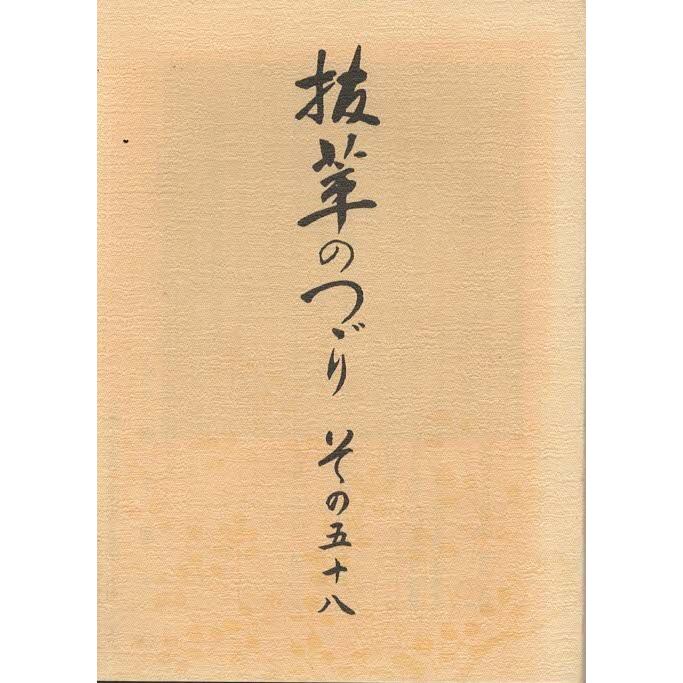 抜萃のつゞり その五十八